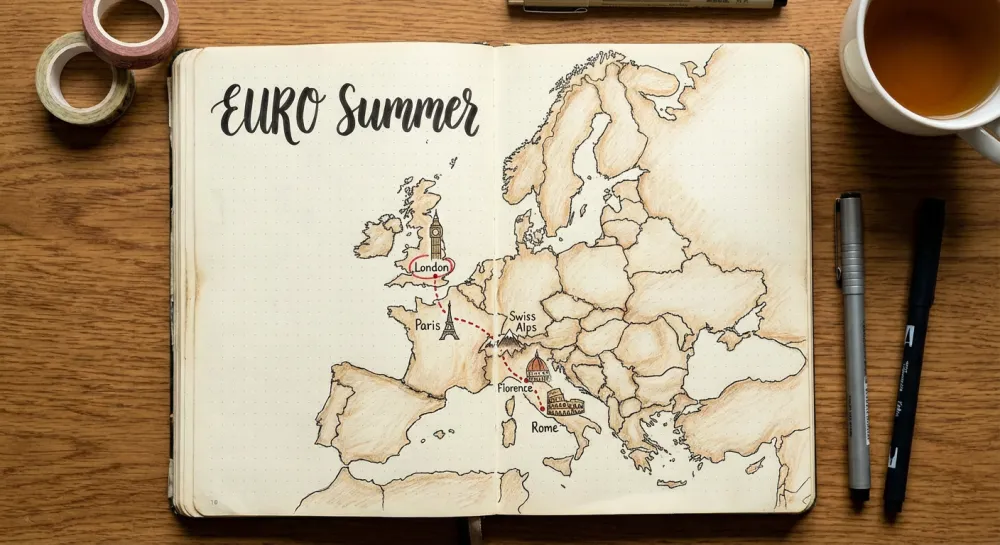 EURO Summer
London
Paris
Swiss
Alps
Florence
Rome